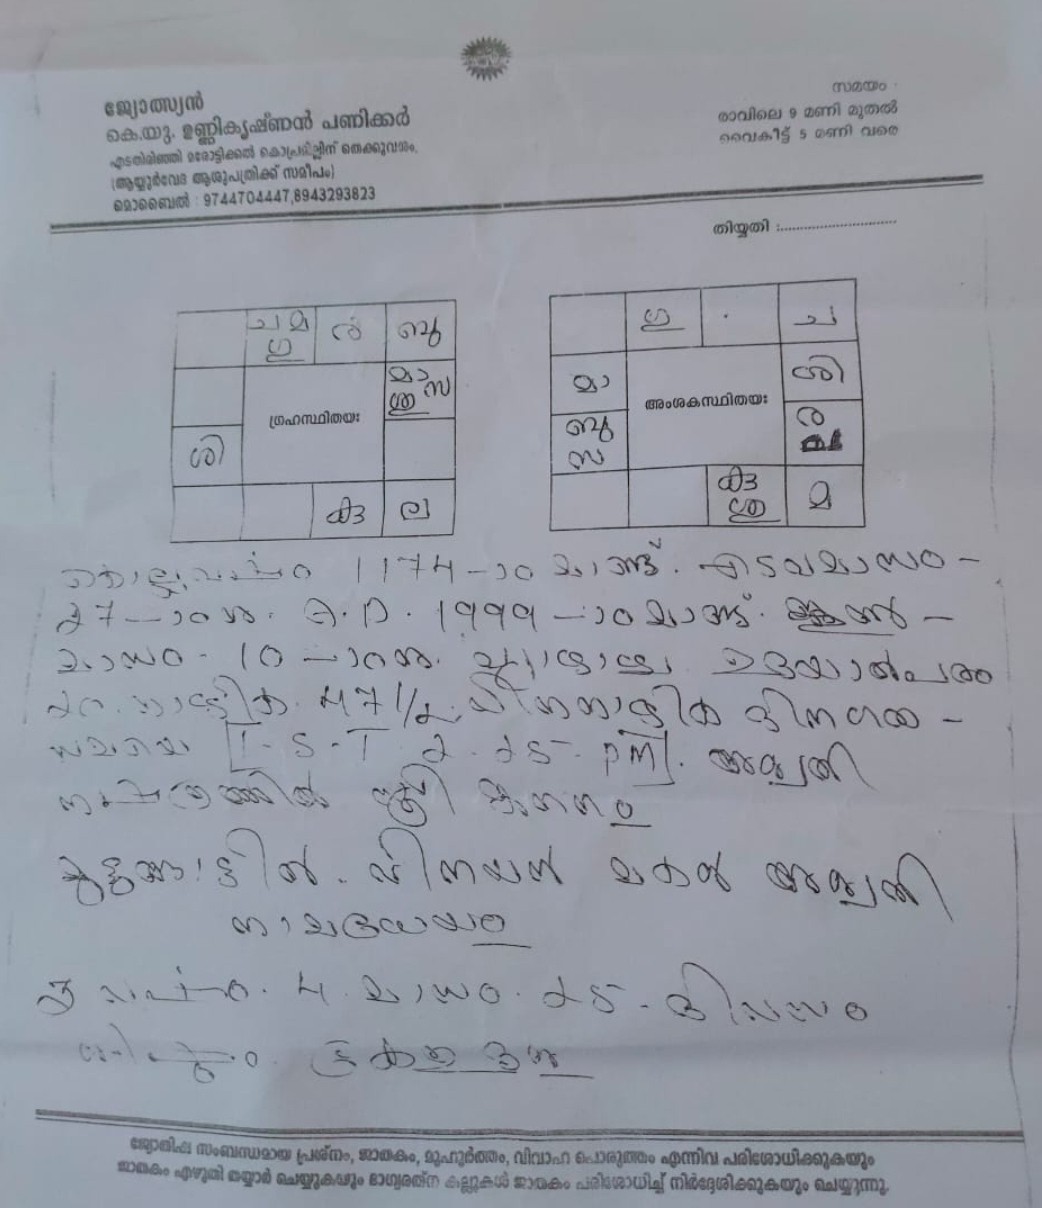 ജ്യോത്സ്യൻ
കെ.യു. ഉണ്ണികൃഷ്ണൻ പണിക്കർ
എടതിരിഞ്ഞി മരോട്ടിക്കൽ കൊപ്രമില്ലിന് തെക്കുവശം.
(ആയുർവേദ ആശുപത്രിക്ക് സമീപം)
മൊബൈൽ : 9744704447,8943293823
സമയം
രാവിലെ 9 മണി മുതൽ
വൈകീട്ട് 5 മണി വരെ
തിയ്യതി :............................
ച മ ര ബു
ഗു
മാ സ
ഗ്രഹസ്ഥിതയഃ
ശി
കു ല
ഗു ച
മാ ശി
അംശകസ്ഥിതയഃ
ബു ര
സ
കു മ
കൊല്ലവർഷം 1174-ാം മാണ്ട്. എടവമാസം -
27-ാം൹. A.D. 1999-ാം മാണ്ട്. ജൂൺ -
മാസം. 10-ാം൹. വ്യാഴാഴ്ച ഉദയാൽപരം
20 നാഴിക. 47 1/2. വിനാഴിക
സമയം [I-S-T 2-25-PM]. അശ്വതി
നക്ഷത്രത്തിൽ സ്ത്രീ ജനനം
വിനയൻ മകൾ അശ്വതി
നാമധേയം
3 വർഷം. 4. മാസം. 25-ദിവസം
ശിഷ്ടം.
ജ്യോതിഷ സംബന്ധമായ പ്രശ്നം, ജാതകം, മുഹൂർത്തം, വിവാഹ പൊരുത്തം എന്നിവ പരിശോധിക്കുകയും
ജാതകം എഴുതി തയ്യാർ ചെയ്യുകയും ഭാഗ്യരത്ന കല്ലുകൾ ജാതകം പരിശോധിച്ച് നിർദ്ദേശിക്കുകയും ചെയ്യുന്നു.